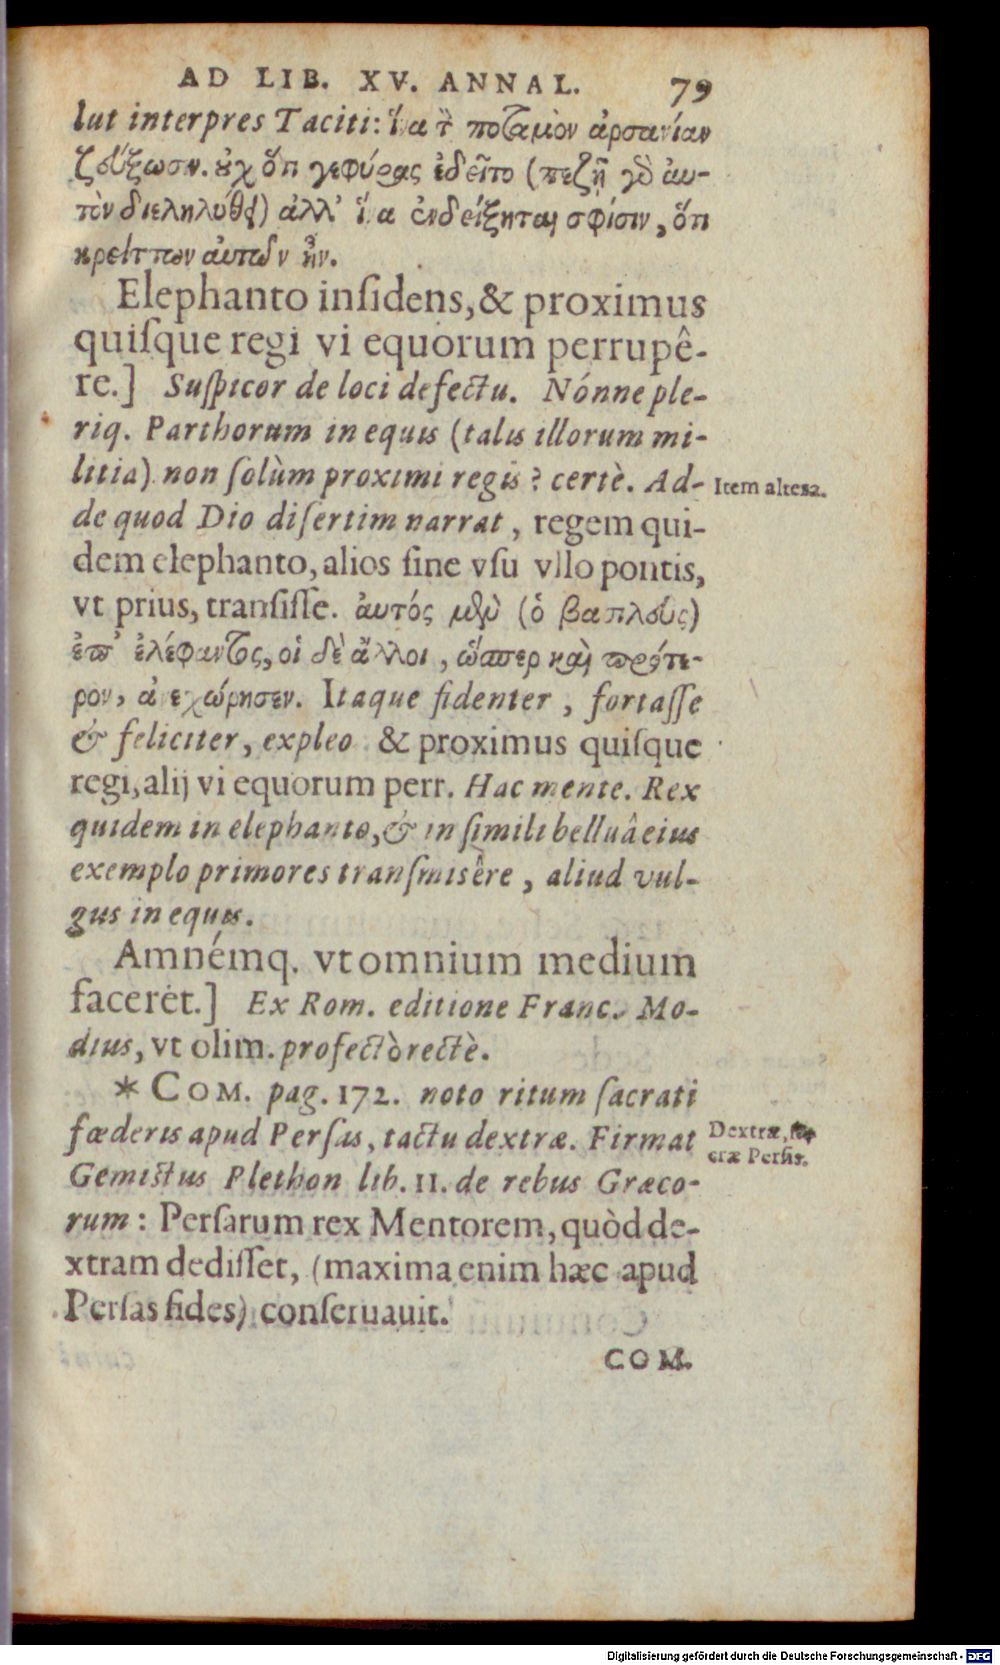 AD LIB. XV. ANNAL. 79
lut interpres Taciti: ἵνα τὸν ποταμὸν ἀρσανίαν
ζεύξωσιν. οὐχ ὅτι γεφύρας ἐδεῖτο (πεζῇ γὸ αὐ-
τὸν διεληλύθει) ἀλλ' ἵνα ἐνδείξηται σφίσιν, ὅτι
κρείττων αὐτῶν ἦν.
Elephanto insidens, & proximus
quiſque regi vi equorum perrupê-
re.] Suſpicor de loci defectu. Nónne ple-
riq. Parthorum in equis (talis illorum mi-
litia) non ſolùm proximi regis? certè. Ad-
Item altera.
de quod Dio diſertim narrat, regem qui-
dem elephanto, alios ſine vſu vllo pontis,
vt prius, tranſiſſe. αὐτός μὲν (ὁ βασιλεύς)
ἐπ' ἐλέφαντος, οἱ δὲ ἄλλοι, ὥσπερ καὶ πρότε-
ρον, ἀνεχώρησεν. Itaque fidenter, fortaſſe
& feliciter, expleo & proximus quiſque
regi, alij vi equorum perr. Hac mente. Rex
quidem in elephanto, & in ſimili belluâ eius
exemplo primores tranſmisêre, aliud vul-
gus in equis.
Amnémq. vt omnium medium
faceret.] Ex Rom. editione Franc. Mo-
dius, vt olim. profectò rectè.
* COM. pag. 172. noto ritum ſacrati
fœderis apud Perſas, tactu dextræ. Firmat
Dextræ, ſa-
cræ Perſis.
Gemiſtus Plethon lib. II. de rebus Græco-
rum: Perſarum rex Mentorem, quòd de-
xtram dediſſet, (maxima enim hæc apud
Perſas fides) conſeruauit.
COM.
Digitalisierung gefördert durch die Deutsche Forschungsgemeinschaft - DFG